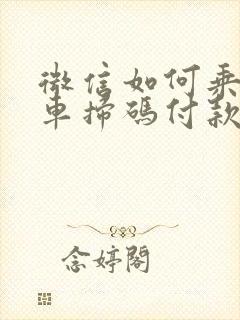 微信如何乘
車掃碼付款
念婷閣